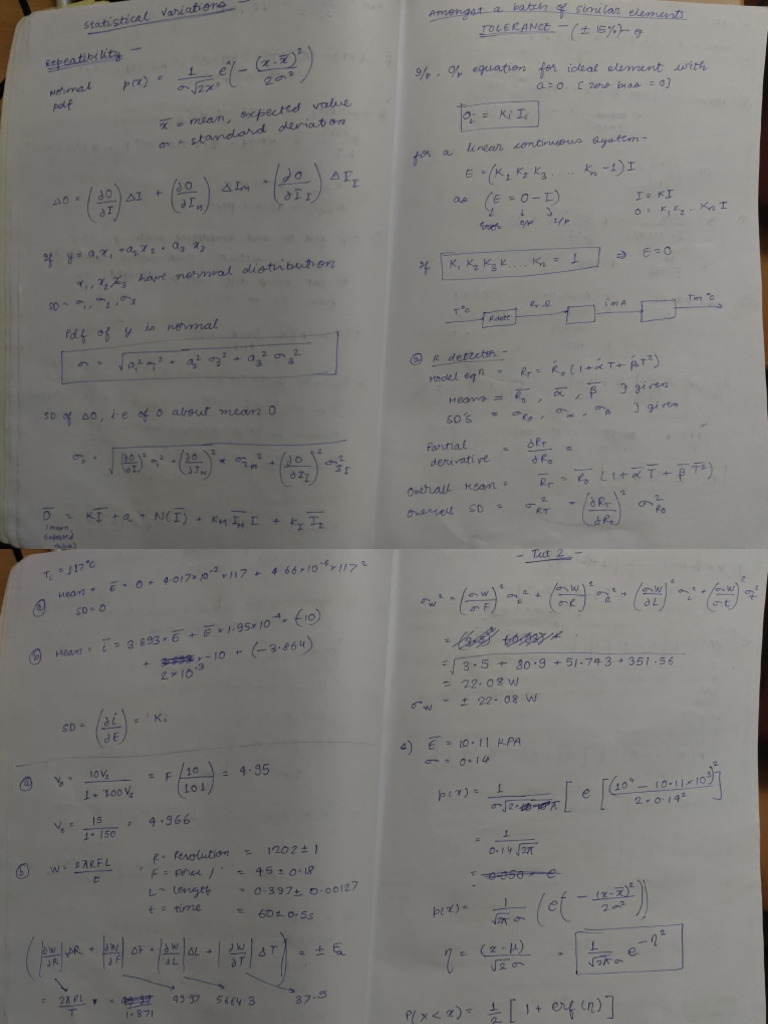 Statistical Variations -
Repeatibility -
Normal pdf p(x) = 1/(σ√2x) e^(-(x-x̄)²/2σ²)
x̄ = mean, expected value
σ = standard deviation
ΔO = (∂O/∂I) ΔI + (∂O/∂I_M) ΔI_M + (∂O/∂I_I) ΔI_I
If y = a₁x₁ + a₂x₂ + a₃x₃
x₁, x₂, x₃ have normal distribution
SD - σ₁, σ₂, σ₃
Pdf of y is normal
σ = √(a₁²σ₁² + a₂²σ₂² + a₃²σ₃²)
SD of ΔO, i.e of O about mean O
σ₀ = √((∂O/∂I)² σ_I² + (∂O/∂I_M)² σ_IM² + (∂O/∂I_I)² σ_II²)
Ō = KĪ + a + N(Ī) + K_M Ī_M Ī + K_I Ī_I
(mean, expected value)
Amongst a batch of similar elements
TOLERANCE - (± 15%)
I/p, O/p equation for ideal element with
a=0 [zero bias = 0]
O_i = K_i I_i
for a linear continuous system -
E = (K₁ K₂ K₃ .... K_n - 1) I
as (E = O - I) I = KI
error O/P I/P O = K₁K₂ . K_n I
If K₁ K₂ K₃ K.... K_n = 1 ⇒ E=0
T°C R_T Ω i mA Tm°C
ⓐ R detector -
Model eqn = R_T = R₀ (1 + αT + βT²)
Means = R̄₀, ᾱ, β̄ } given
SD'S = σ_R₀, σ_α, σ_β } given
Partial derivative = ∂R_T/∂R₀ =
Overall Mean = R̄_T = R̄₀ (1 + ᾱT̄ + β̄T̄²)
Overall SD = σ²_RT = (∂R_T/∂R₀)² σ²_R₀
T_i = 117°C
ⓐ Mean = Ē = 0 + 4.017×10⁻² × 117 + 4.66×10⁻⁶ × 117²
SD=0
ⓑ Mean = ī = 3.893 × Ē + Ē × 1.95×10⁻⁴ × (-10)
+ 2×10⁻³ × -10 + (-3.864)
SD = (∂i/∂E) = K₁
ⓐ V₀ = 10V₁/(1 + 100V₁) = F (10/101) = 4.95
V₀ = 15/(1+150) = 4.966
ⓑ W = 2πRFL/t
R = Revolution = 1202 ± 1
F = Force = 45 ± 0.18
L = length = 0.397 ± 0.00127
t = time = 60 ± 0.5s
(|∂W/∂R| ΔR + |∂W/∂F| ΔF + |∂W/∂L| ΔL + |∂W/∂T| ΔT) = ± E_a
= 2πRL/T = 1.871 4997 5664 3 37.5
- Tut 2 -
σ_W² = (σW/σF)² σ² + (σW/σR)² σ_R² + (σW/∂L)² σ_L² + (σW/σt)² σ_t²
= √(3.5 + 80.9 + 51.743 + 351.36)
= 22.08 W
σ_W = ± 22.08 W
c) Ē = 10.11 KPA
σ = 0.14
p(x) = 1/(σ√2π) [e [(10⁴ - 10.11×10³)²/2×0.14²]]
= 1/(0.14√2π)
p(x) = 1/(√2π σ) (e(-(x-x̄)²/2σ²))
η = (x-μ)/(√2 σ) = 1/(√2π σ) e^(-η²)
P(x<x) = 1/2 [1 + erf(η)]